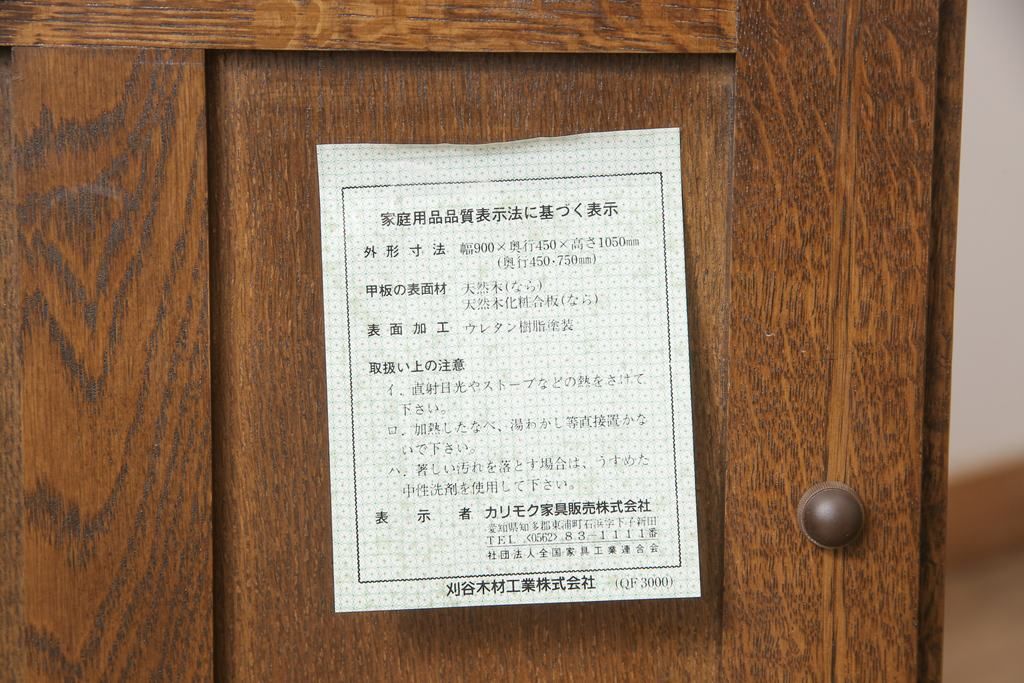 家庭用品品質表示法に基づく表示
外形寸法 幅900×奥行450×高さ1050mm
(奥行450・750mm)
甲板の表面材 天然木(なら)
天然木化粧合板(なら)
表面加工 ウレタン樹脂塗装
取扱い上の注意
イ．直射日光やストーブなどの熱をさけて
下さい。
ロ．加熱したなべ、湯わかし等直接置かな
いで下さい。
ハ．著しい汚れを落とす場合は、うすめた
中性洗剤を使用して下さい。
表示者 カリモク家具販売株式会社
愛知県知多郡東浦町石浜字下子新田
TEL〈0562〉83-1111番
社団法人全国家具工業連合会
刈谷木材工業株式会社 (QF3000)